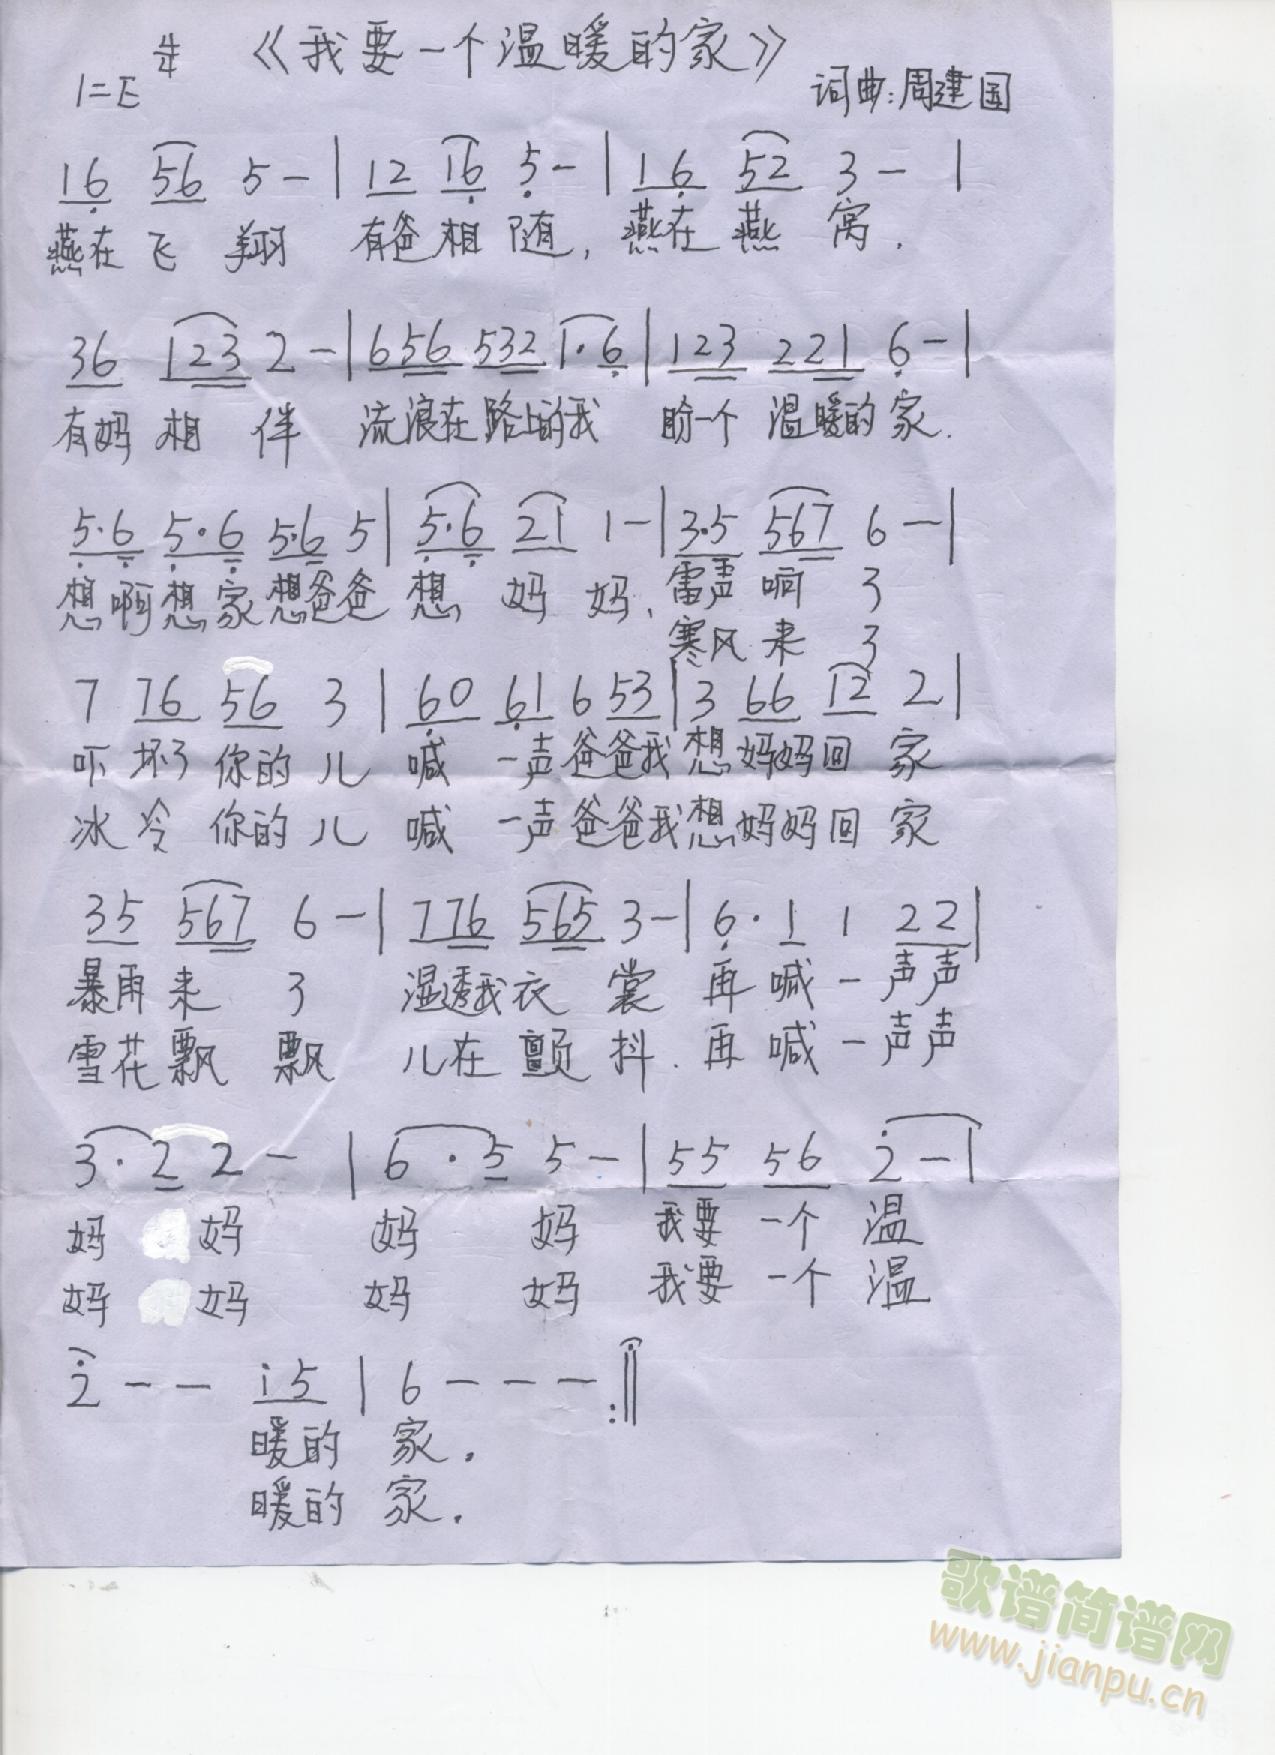 4/4 《我要一个温暖的家》
1=E 词曲:周建国
16 56 5 - | 12 16 5 - | 16 52 3 - |
燕在飞翔 有爸相随, 燕在燕窝.
36 123 2 - | 656 532 1·6 | 123 221 6 - |
有妈相伴 流浪在路上的我 盼一个温暖的家.
5·6 5·6 5·6 5 | 5·6 21 1 - | 3·5 567 6 - |
想啊想家想爸爸 想妈妈. 雷声响了
寒风来了
7 76 56 3 | 60 61 6 53 | 3 66 12 2 |
吓坏了你的儿 喊一声爸爸我想妈妈回家
冰冷你的儿 喊一声爸爸我想妈妈回家
35 567 6 - | 776 565 3 - | 6· 1 1 22 |
暴雨来了 湿透我衣裳 再喊一声声
雪花飘飘 儿在颤抖. 再喊一声声
3· 2 2 - | 6· 5 5 - | 55 56 2̇ - |
妈妈 妈妈 我要一个温
妈妈 妈妈 我要一个温
2̇ - - i5 | 6 - - - :||
暖的家.
暖的家.
歌谱简谱网
www.jianpu.cn